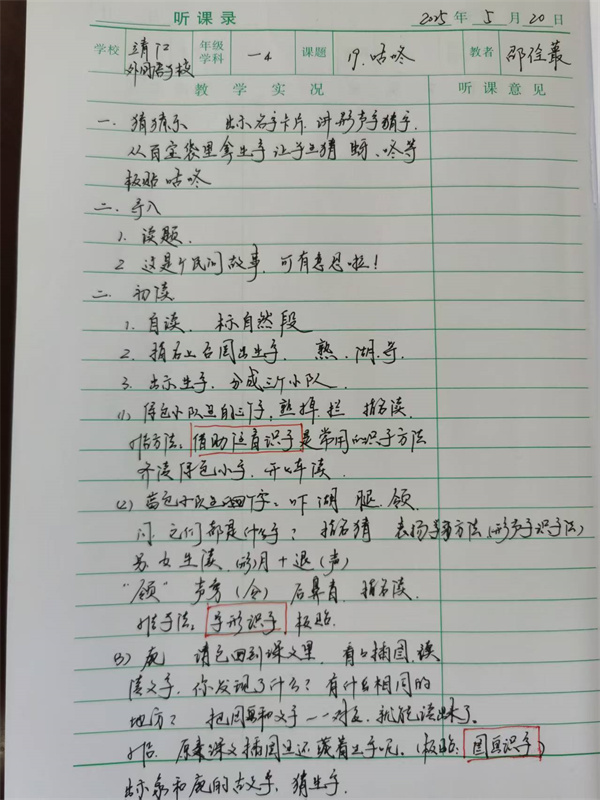 听课录 2025年5月20日
学校 靖江外国语学校 年级学科 一4 课题 19.咕咚 教者
教学实况 听课意见
一. 猜猜乐 出示名字卡片, 讲形声字猜字.
从百宝袋里拿生字 让学生猜 蚜、咚等
板贴 咕咚
二. 导入
1. 读题.
2 这是个民间故事, 可有意思啦!
二. 初读
1. 自读. 标自然段
2. 指名上台圈出生字. 熟. 湖. 等.
3. 出示生字. 分成三个小队.
(1) 绿色小队里有三个字, 熟 掉 拦 指名读.
推荐方法. 借助拼音识字 是常用的识字方法
齐读绿色小字. 开火车读.
(2) 蓝色小队里四个字、吓 湖 腿 领
问 它们都是什么字? 指名猜 识字方法(形声字识字法)
男女生读. (形)月+退(声)
“领” 声旁 (令) 后鼻音. 指名读.
推荐方法. 字形识字. 板贴.
(3) 鹿 请包回到课文里. 有个插图. 读
读文字. 你发现了什么? 有什么相同的
地方? 把图画和文字一一对应, 就能读出来了.
小结. 原来课文插图里还藏着生字呢. (板贴: 图画识字)
出示象和鹿的古文字. 猜生字.